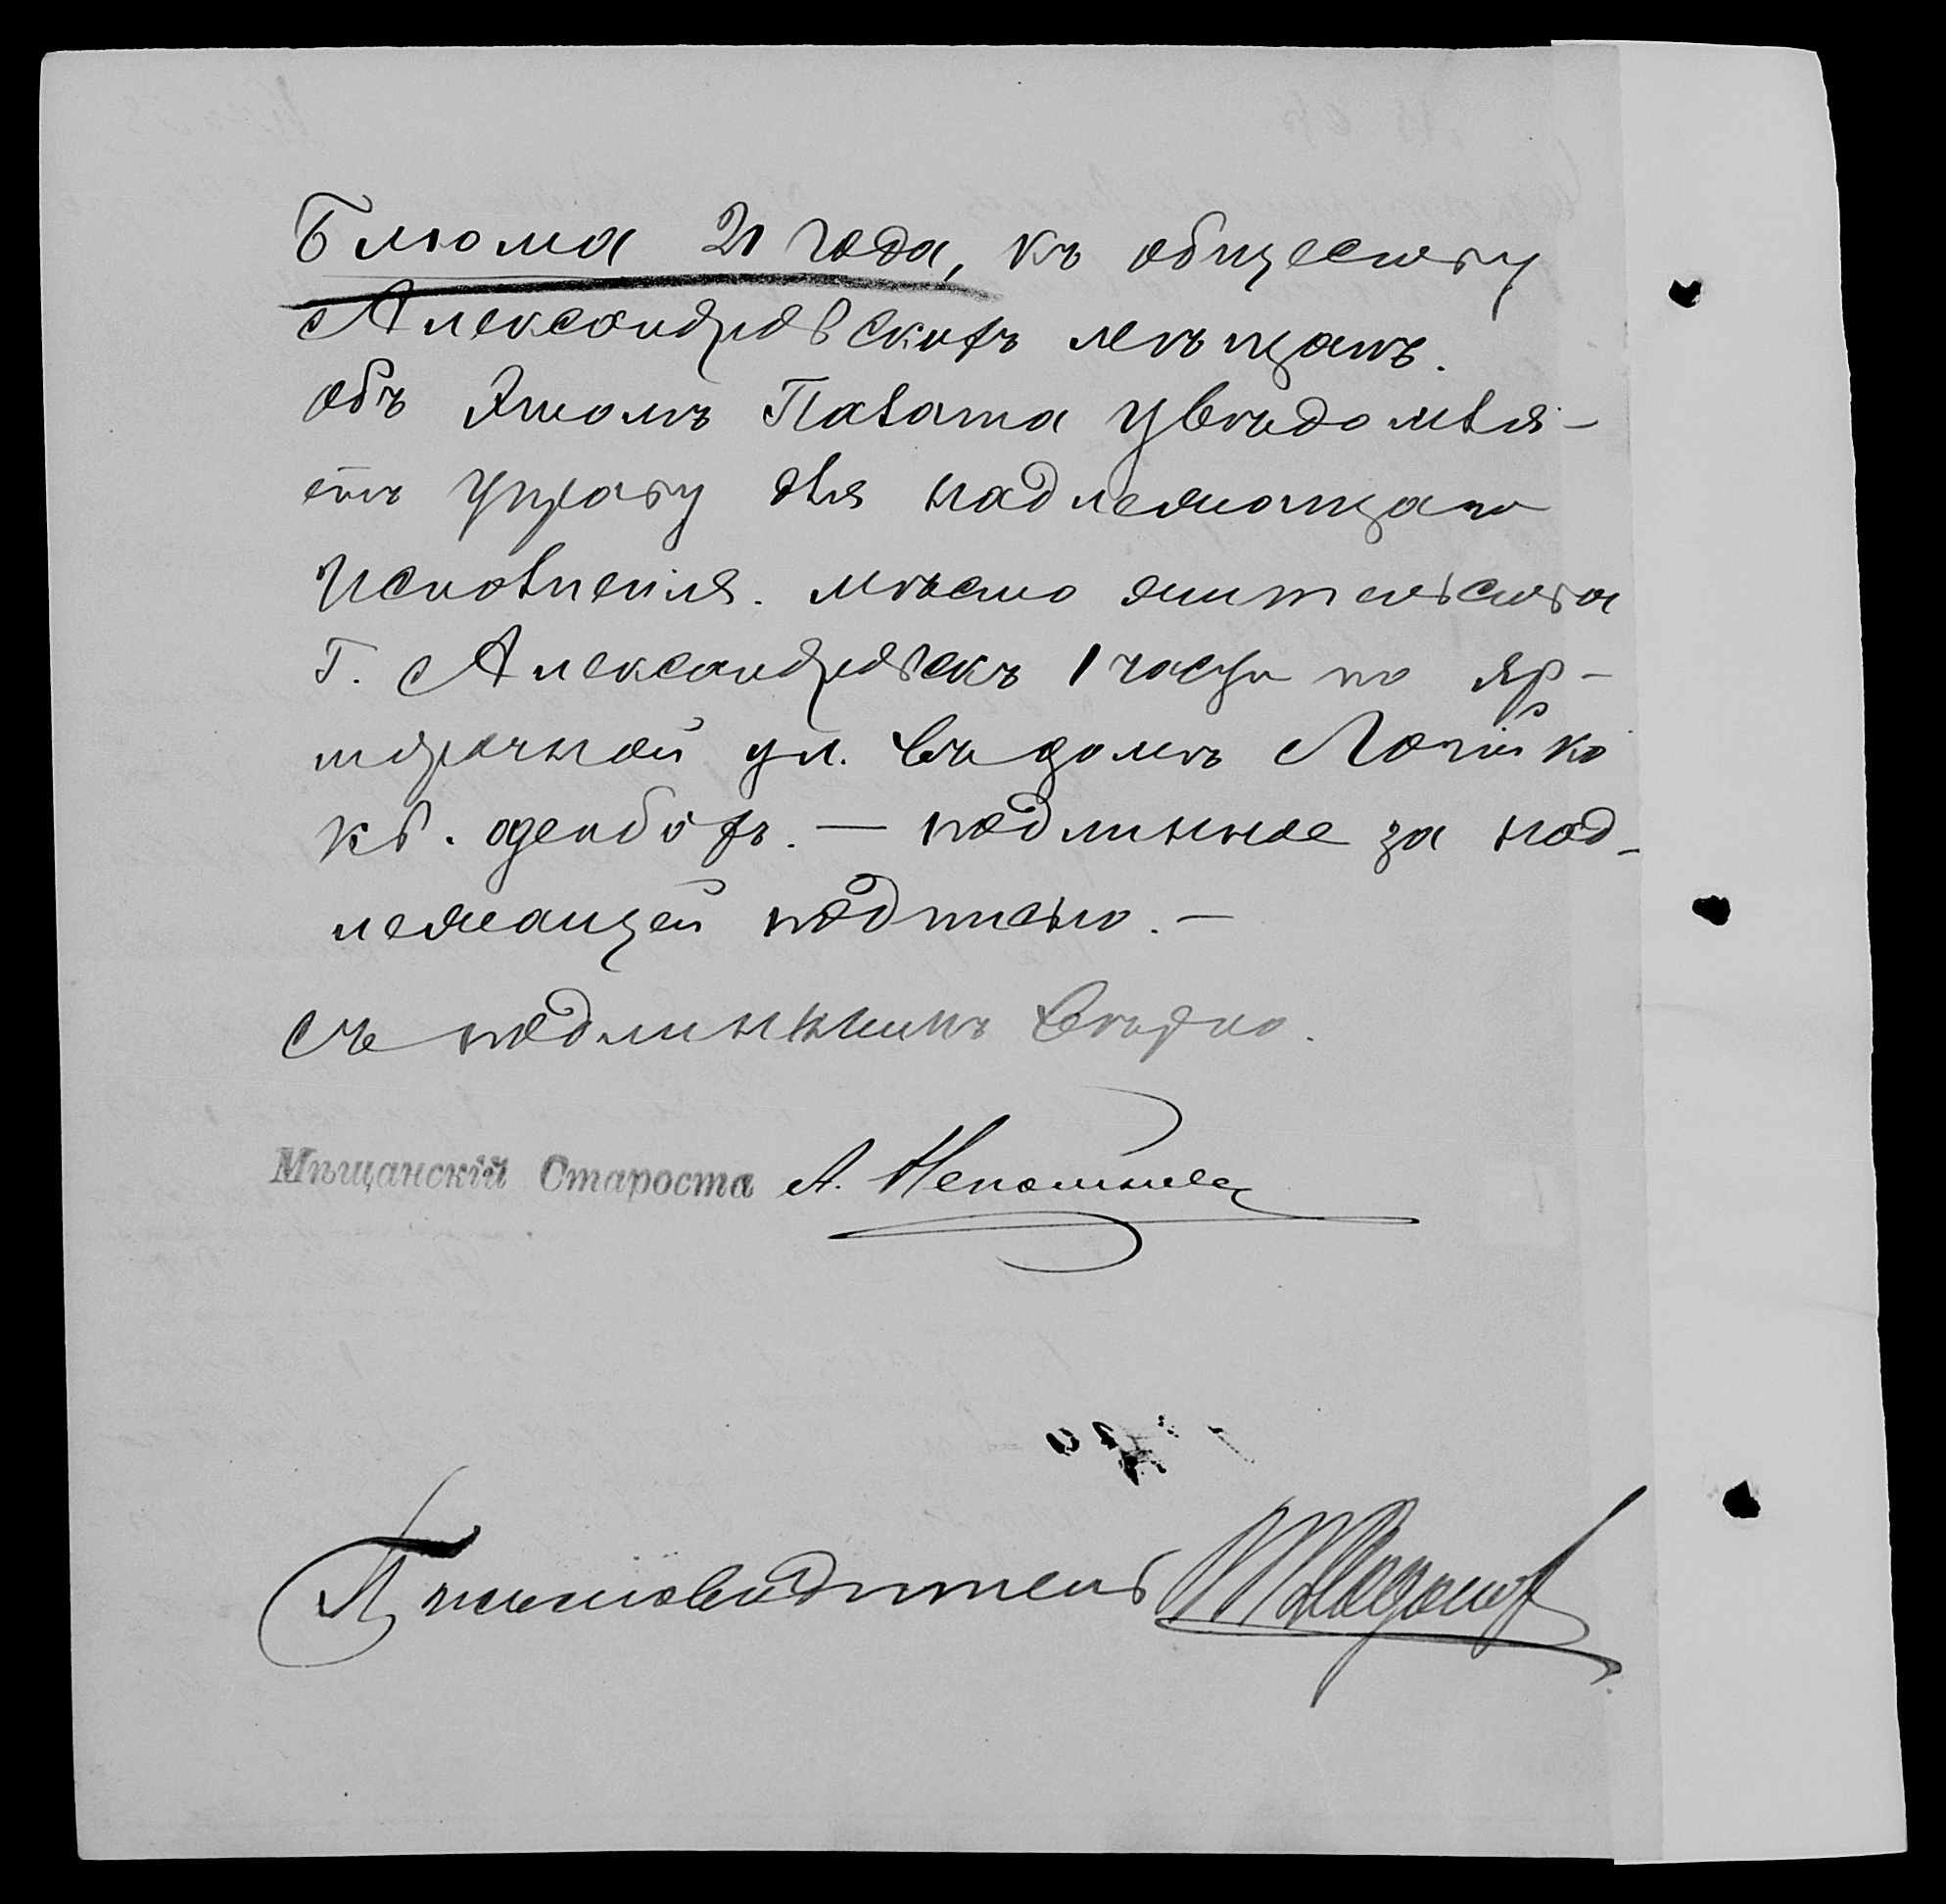 Блюма 21 года, къ обществу
Александровскихъ мѣщанъ.
Объ этомъ Палата увѣдомля-
етъ управу для надлежащаго
исполненія. Мѣсто жительства
Г. Александровскъ 1 части по яр-
морочной ул. въ домѣ
кв. — подлинное за над-
лежащей подписью. —
Съ подлиннымъ вѣрно.
Мѣщанскій Староста А.
Письмоводитель